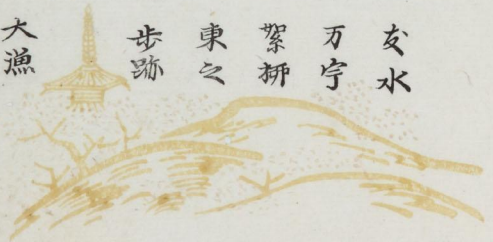 友水
万宁
絮揶
東之
歩跡
大漁